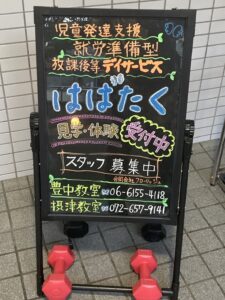 児童発達支援
就労準備型
放課後等デイサービス
はばたく
見学・体験
受付中
スタッフ募集中
豊中教室 06-6155-4118
摂津教室 072-657-9141